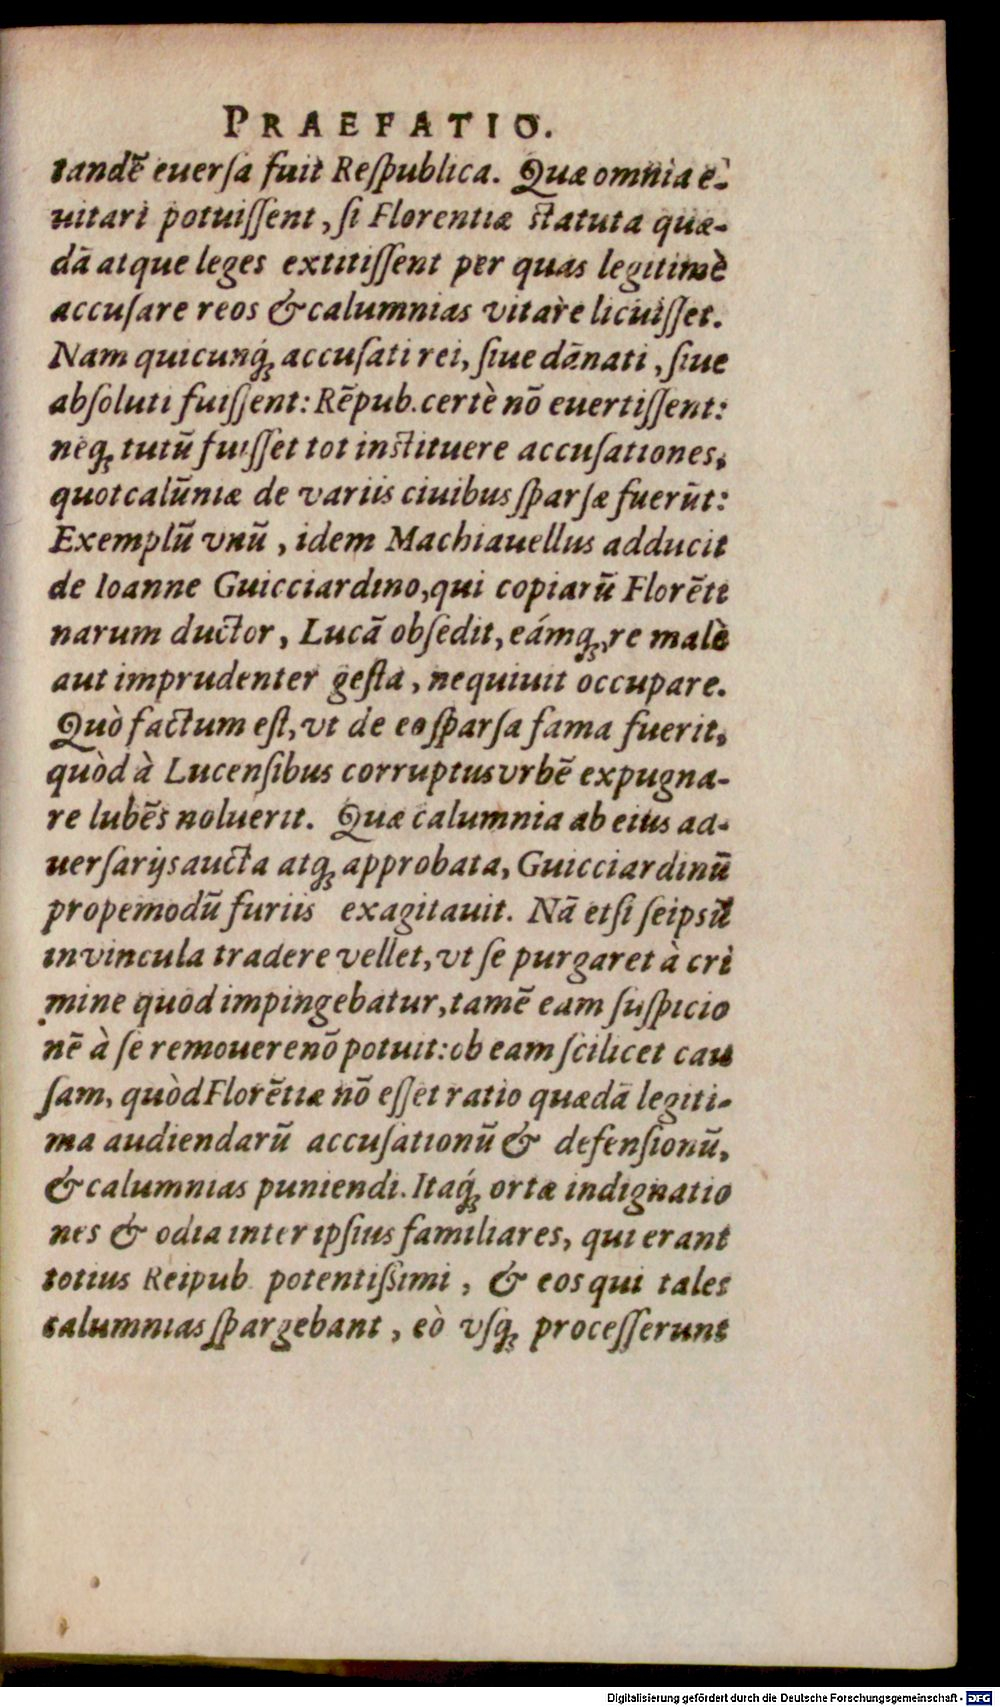 PRAEFATIO.
tandē euerſa fuit Reſpublica. Quæ omnia e-
uitari potuiſſent, ſi Florentiæ ſtatuta quæ-
dā atque leges extitiſſent per quas legitimè
accuſare reos & calumnias vitare licuiſſet.
Nam quicunq́ꝫ accuſati rei, ſiue dānati, ſiue
abſoluti fuiſſent: Rēpub. certè nō euertiſſent:
neqꝫ tutū fuiſſet tot inſtituere accuſationes,
quot calūniæ de variis ciuibus ſparſæ fuerūt:
Exemplū vnū, idem Machiauellus adducit
de Ioanne Guicciardino, qui copiarū Florēti
narum ductor, Lucā obſedit, eámqꝫ, re malè
aut imprudenter geſta, nequiuit occupare.
Quò factum eſt, vt de eo ſparſa fama fuerit,
quòd à Lucenſibus corruptus vrbē expugna-
re lubēs noluerit. Quæ calumnia ab eius ad-
uerſarijs aucta atqꝫ approbata, Guicciardinū
propemodū furiis exagitauit. Nā etſi ſeipsū
in vincula tradere vellet, vt ſe purgaret à cri
mine quod impingebatur, tamē eam ſuſpicio
nē à ſe remouere nō potuit: ob eam ſcilicet cau
ſam, quòd Florētiæ nō eſſet ratio quædā legiti-
ma audiendarū accuſationū & defenſionū,
& calumnias puniendi. Itaq́ꝫ ortæ indignatio
nes & odia inter ipſius familiares, qui erant
totius Reipub. potentiſsimi, & eos qui tales
calumnias ſpargebant, eò vſqꝫ proceſſerunt
Digitalisierung gefördert durch die Deutsche Forschungsgemeinschaft - DFG